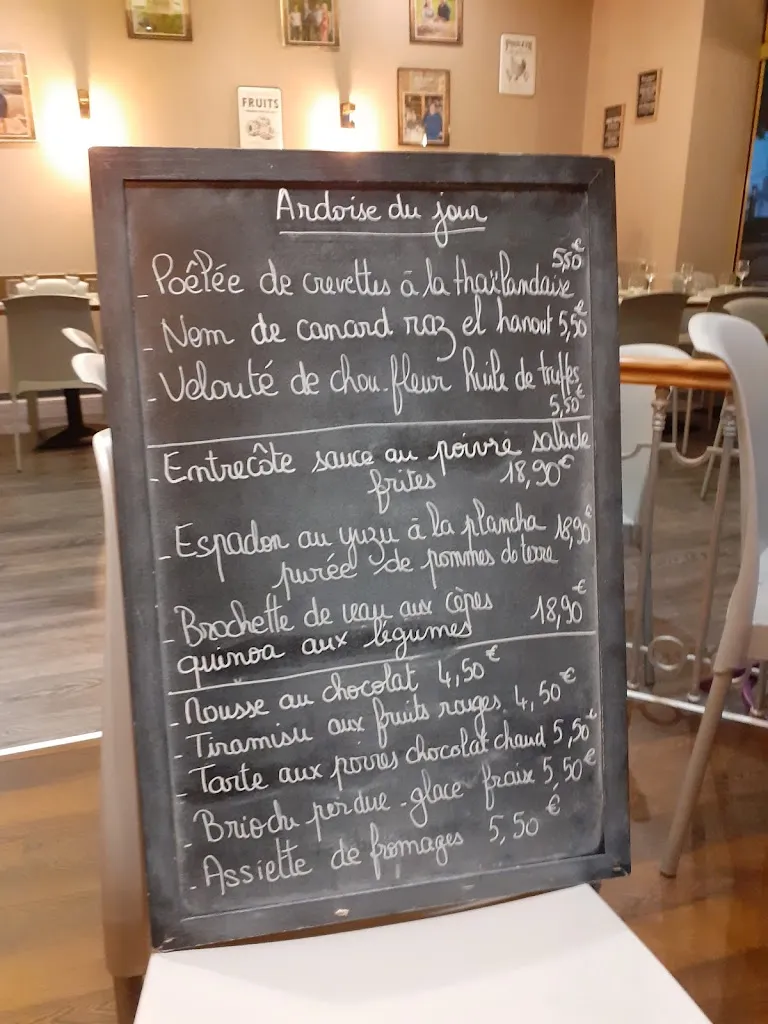 FRUITS
Ardoise du jour
- Poêlée de crevettes à la thaïlandaise 5,50€
- Nem de canard raz el hanout 5,50€
- Velouté de chou-fleur huile de truffes
5,50€
- Entrecôte sauce au poivre salade
frites 18,90€
- Espadon au yuzu à la plancha 18,90€
purée de pommes de terre
- Brochette de veau aux cèpes 18,90€
quinoa aux légumes
- Mousse au chocolat 4,50€
- Tiramisu aux fruits rouges 4,50€
- Tarte aux poires chocolat chaud 5,50€
- Brioche perdue - glace fraise 5,50€
- Assiette de fromages 5,50€